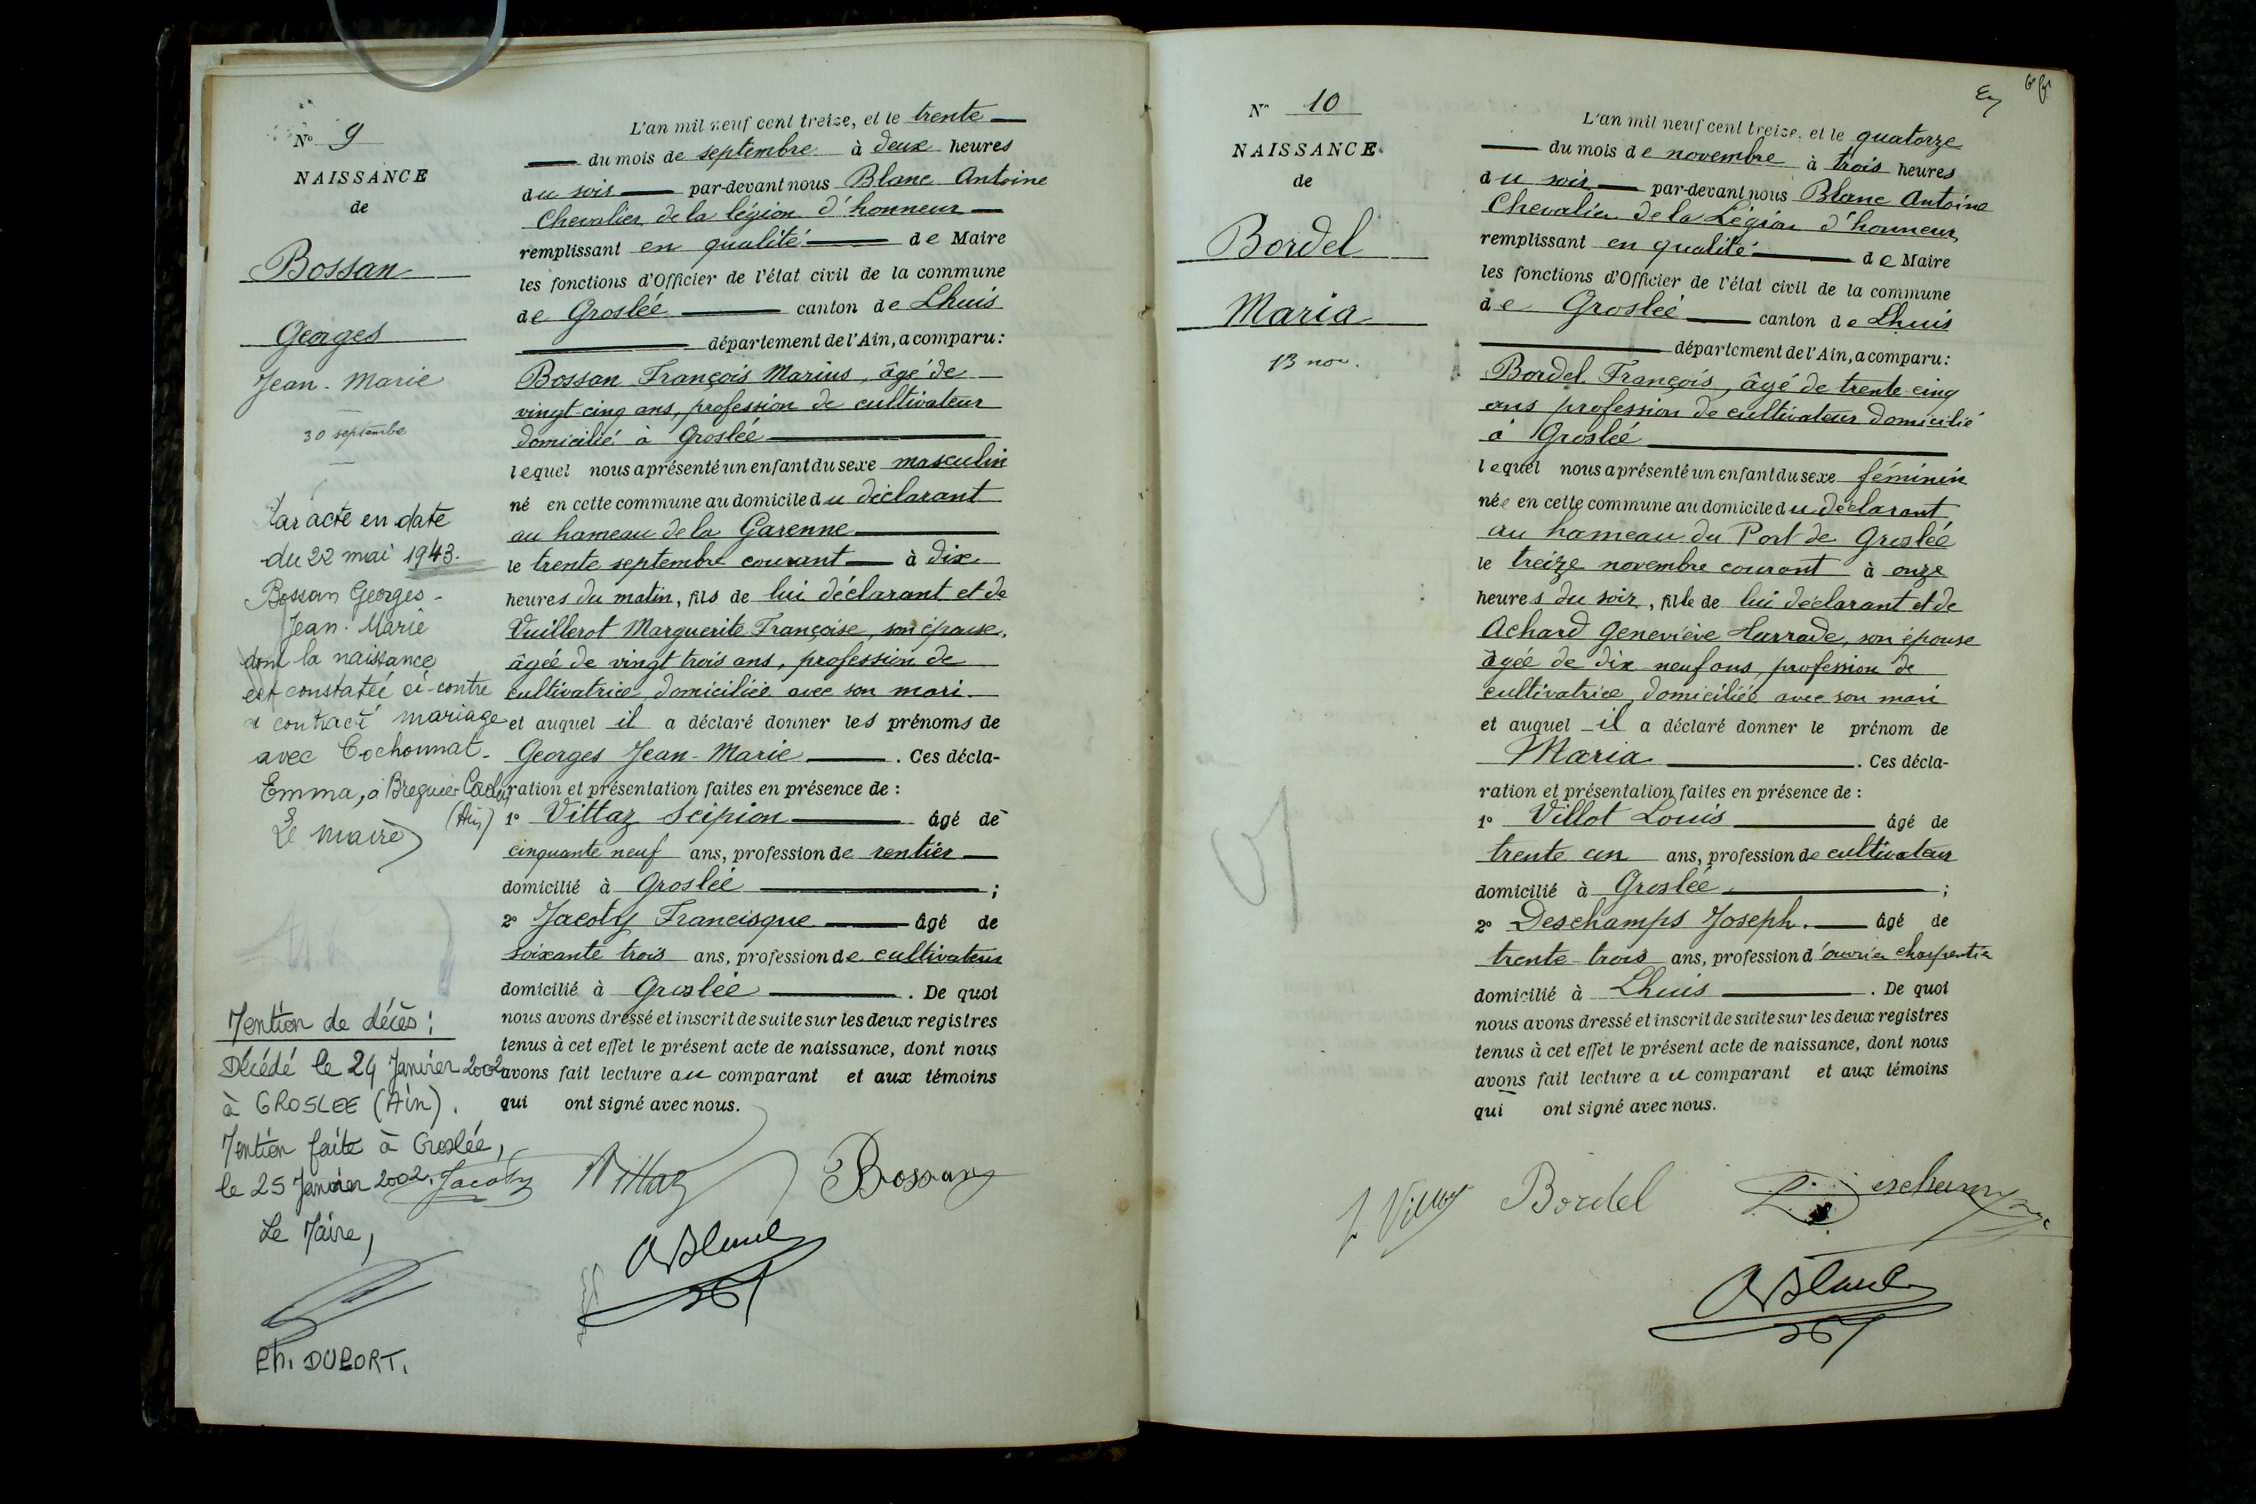 N° 9
NAISSANCE
de
Bossan
Georges
Jean-Marie
30 septembre
Par acte en date
du 22 mai 1943.
Bossan Georges-
Jean-Marie
dont la naissance
est constatée ci-contre
a contracté mariage
avec Cochonnat
Emma, à Bregnier Cordon
(Ain)
Le maire
Mention de décès :
Décédé le 24 Janvier 2002
à GROSLEE (Ain).
Mention faite à Groslée,
le 25 Janvier 2002.
Le Maire,
Ph. DUPORT.
L'an mil neuf cent treize, et le trente
du mois de septembre à deux heures
du soir par-devant nous Blanc Antoine
Chevalier de la légion d'honneur
remplissant en qualité de Maire
les fonctions d'Officier de l'état civil de la commune
de Groslée canton de Lhuis
département de l'Ain, a comparu :
Bossan François Marius, âgé de
vingt-cinq ans, profession de cultivateur
domicilié à Groslée
lequel nous a présenté un enfant du sexe masculin
né en cette commune au domicile du déclarant
au hameau de la Garenne
le trente septembre courant à dix
heures du matin, fils de lui déclarant et de
Vuillerot Marguerite Françoise, son épouse,
âgée de vingt trois ans, profession de
cultivatrice domiciliée avec son mari
et auquel il a déclaré donner les prénoms de
Georges Jean-Marie . Ces décla-
ration et présentation faites en présence de :
1° Vittaz Scipion âgé de
cinquante neuf ans, profession de rentier
domicilié à Groslée ;
2° Jacoty Francisque âgé de
soixante trois ans, profession de cultivateur
domicilié à Groslée . De quoi
nous avons dressé et inscrit de suite sur les deux registres
tenus à cet effet le présent acte de naissance, dont nous
avons fait lecture au comparant et aux témoins
qui ont signé avec nous.
Jacoty Vittaz Bossan
A Blanc
N° 10
NAISSANCE
de
Bordel
Maria
13 nov.
L'an mil neuf cent treize, et le quatorze
du mois de novembre à trois heures
du soir par-devant nous Blanc Antoine
Chevalier de la Légion d'honneur
remplissant en qualité de Maire
les fonctions d'Officier de l'état civil de la commune
de Groslée canton de Lhuis
département de l'Ain, a comparu :
Bordel François, âgé de trente-cinq
ans profession de cultivateur domicilié
à Groslée
lequel nous a présenté un enfant du sexe féminin
née en cette commune au domicile du déclarant
au hameau du Port de Groslée
le treize novembre courant à onze
heures du soir, fille de lui déclarant et de
Achard Geneviève Harrade, son épouse
âgée de dix neuf ans, profession de
cultivatrice domiciliée avec son mari
et auquel il a déclaré donner le prénom de
Maria . Ces décla-
ration et présentation faites en présence de :
1° Villot Louis âgé de
trente un ans, profession de cultivateur
domicilié à Groslée ;
2° Deschamps Joseph. âgé de
trente-trois ans, profession d'ouvrier charpentier
domicilié à Lhuis . De quoi
nous avons dressé et inscrit de suite sur les deux registres
tenus à cet effet le présent acte de naissance, dont nous
avons fait lecture au comparant et aux témoins
qui ont signé avec nous.
L Villot Bordel Deschamps
A Blanc